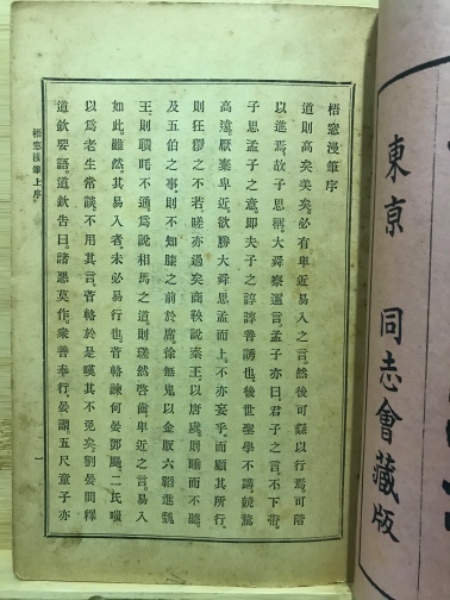 東京 同志會藏版
梧窓漫筆序
道則高矣美矣。必有卑近易入之言。然後可繇以行焉。可階
以進焉。故子思稱。大舜察邇言。孟子亦曰。君子之言。不下帶。
子思孟子之意。即夫子之諄諄善誘也。後世聖學不講。競騖
高遠。厭棄卑近。欲勝大舜思孟而上。不亦妄乎。而顧其所行。
則狂獧之不若。嗟亦過矣。商鞅說秦王。以唐虞。則睡而不聽。
及五伯之事。則不知膝之前於席。徐無鬼以金版六韜進魏
王。則聵眊不通。爲說相馬之道。則瑳然啓齒。卑近之言。易入
如此。雖然。其易入者。未必易行也。菅輅諫何晏鄧颺。二氏嗤
以爲老生常談。不用其言。菅輅於是嘆其不免矣。劉晏問釋
道欽要語。道欽告曰。諸惡莫作。衆善奉行。晏謂五尺童子亦
梧窓漫筆上序
一